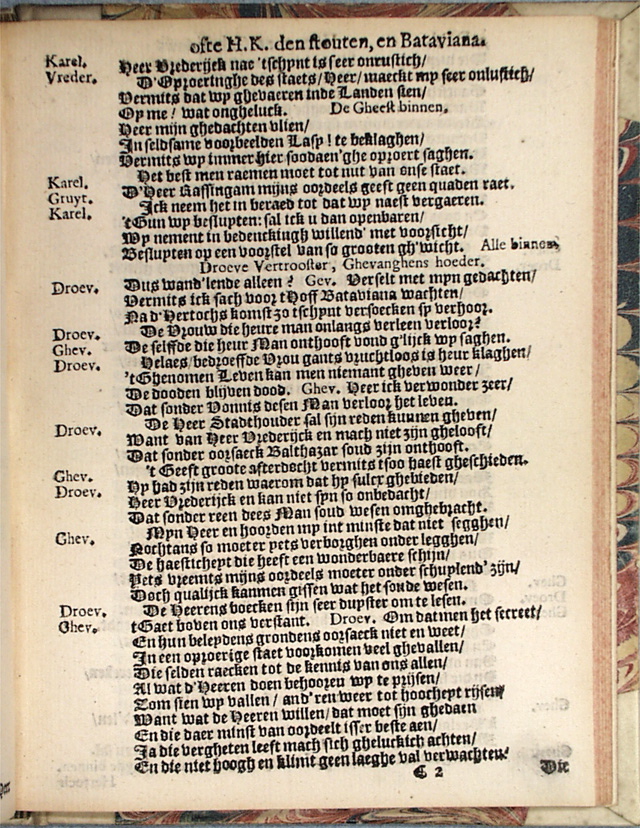 ofte H.K. den stouten, en Bataviana.
Karel. Heer Vrederijck nae 'tschynt is seer onrustich/
Vreder. D'Oproeringhe des staets/Heer/maeckt my seer onlustich/
Vermits dat wy ghevaeren inde Landen sien/
Op me! wat ongheluck. De Gheest binnen.
Heer mijn ghedachten vlien/
In seldsame voorbeelden Lasy! te beklaghen/
Vermits wy immer hier soodaen'ghe oproert saghen.
Het best men raemen moet tot nut van onse staet.
Karel. D'Heer Gassingam mijns oordeels geeft geen quaden raet.
Gruyt. Ick neem het in beraed tot dat wy naest vergaeren.
Karel. 'tGun wy besluyten: sal ick u dan openbaren/
Wy nement in bedenckingh willend' met voorsicht/
Besluyten op een voorstel van so grooten gh'wicht. Alle binnen.
Droeve Vertrooster, Ghevanghens hoeder.
Droev. Dus wand'lende alleen? Gev. Verselt met myn gedachten/
Vermits ick sach voor t Hoff Bataviana wachten/
Na d'Hertochs komst zo tschynt versoecken sy verhoor.
Droev. De Vrouw die heure man onlangs verleen verloor?
Ghev. De selffde die heur Man onthooft vond g'lijck wy saghen.
Droev. Helaes/bedroeffde Vrou gants vruchtloos is heur klaghen/
'tGhenomen Leven kan men niemant gheven weer/
De dooden blijven dood. Ghev. Heer ick verwonder zeer/
Dat sonder Vonnis desen Man verloor het leven.
Droev. De Heer Stadthouder sal sijn reden kunnen gheven/
Want van Heer Vrederijck en mach niet zijn ghelooft/
Dat sonder oorsaeck Balthazar soud zijn onthooft.
Ghev. 't Geeft groote afterdecht vermits tsoo haest gheschieden.
Droev. Hy had zijn reden waerom dat hy sulcx ghebieden/
Heer Vrederijck en kan niet syn so onbedacht/
Dat sonder reen dees Man soud wesen omghebracht.
Ghev. Myn Heer en hoorden my int minste dat niet segghen/
Nochtans so moeter yets verborghen onder legghen/
De haesticheyt die heeft een wonderbaere schijn/
Yets vreemts mijns oordeels moeter onder schuylend' zijn/
Doch qualijck kanmen gissen wat het soude wesen.
Droev. De Heerens boecken sijn seer duyster om te lesen.
Ghev. tGaet boven ons verstant. Droev. Om datmen het secreet/
En hun beleydens grondens oorsaeck niet en weet/
In een oproerige staet voorkomen veel ghevallen/
Die selden raecken tot de kennis van ons allen/
Al wat d'Heeren doen behooren wy te prijsen/
Som sien wy vallen/ and'ren weer tot hoocheyt rijsen/
Want wat de Heeren willen/ dat moet sijn ghedaen
En die daer minst van oordeelt isser beste aen/
Ja die vergheten leeft mach sich gheluckich achten/
En die niet hoogh en klimt geen laeghe val verwachten.
C 2 Die